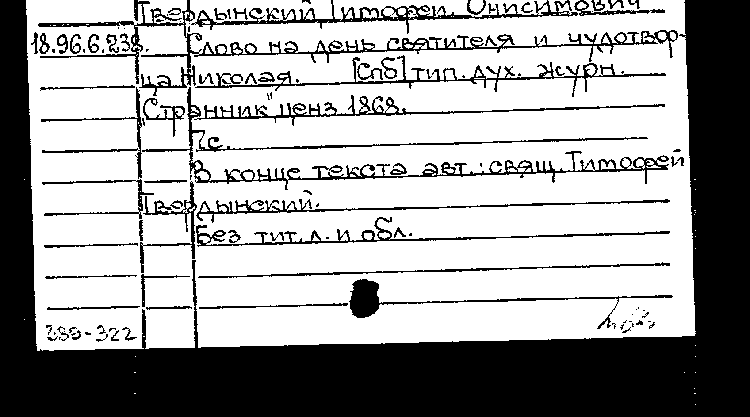 Твердынский Тимофей Онисимович
18.96.6.238. Слово на день святителя и чудотвор-
ца Николая. [Спб] тип. дух. журн.
"Странник", ценз 1868.
7с.
В конце текста авт.: свящ. Тимофей
Твердынский.
Без тит. л. и обл.
289-322